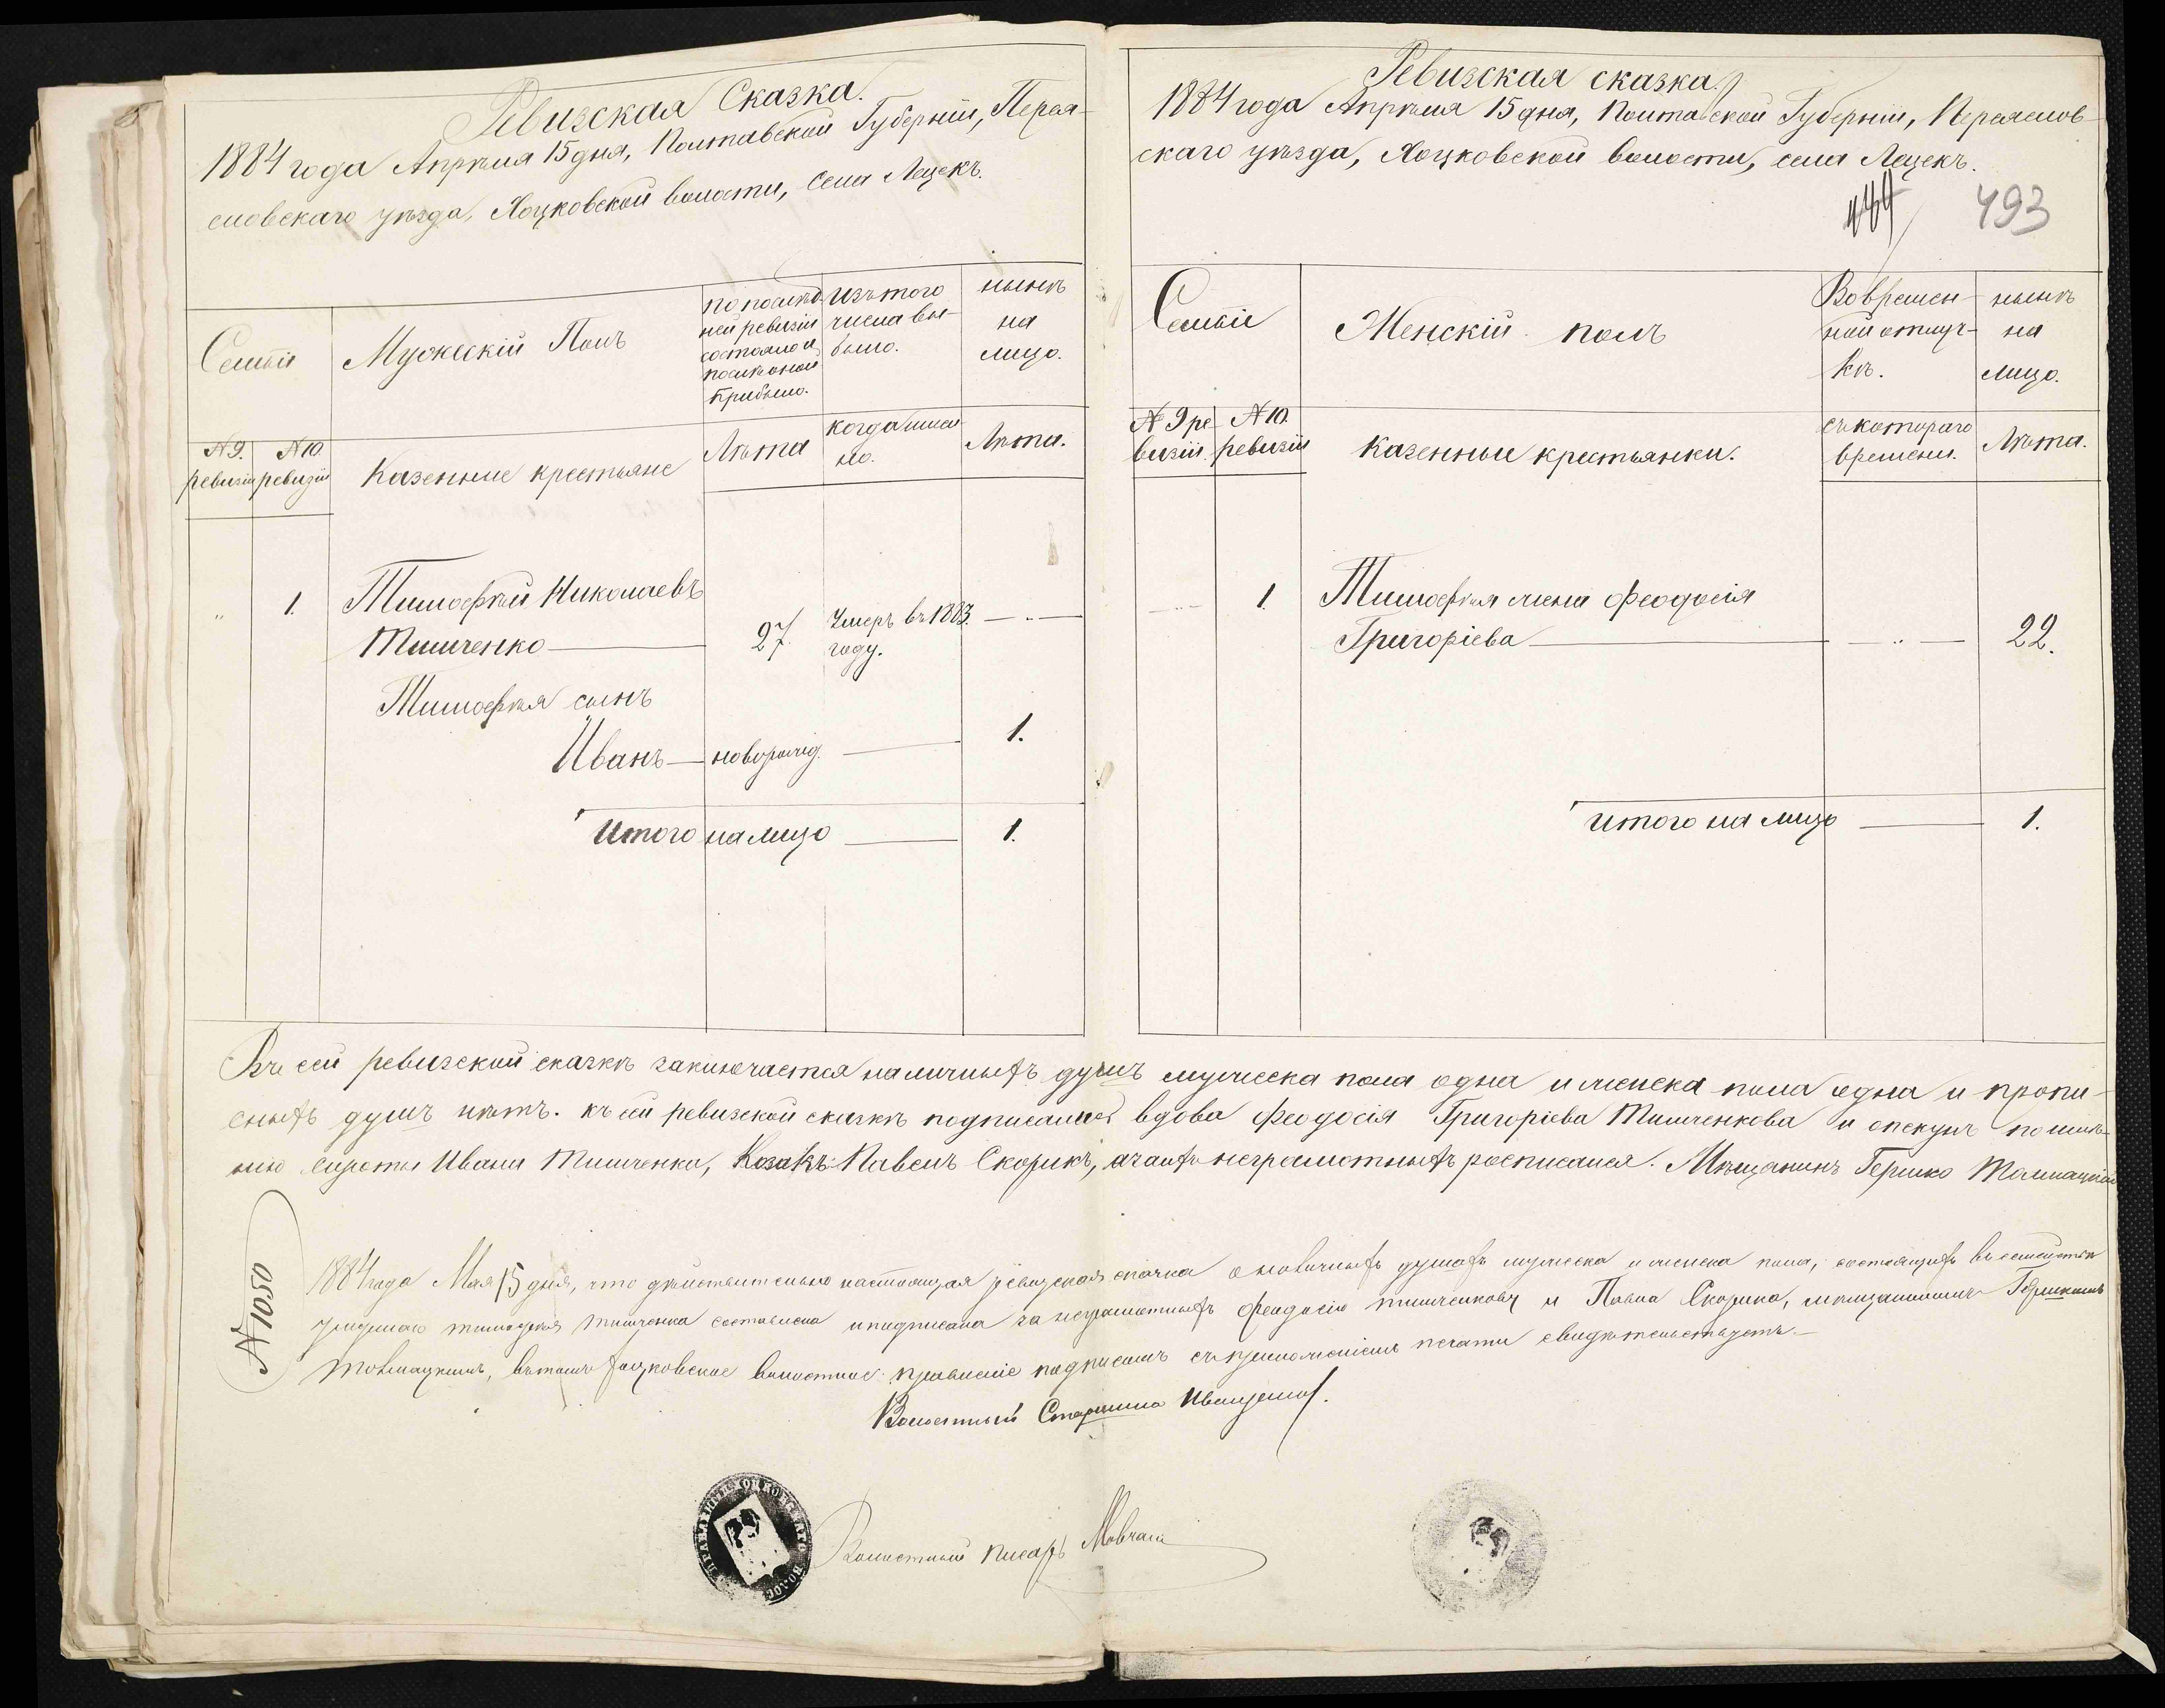 Ревизская Сказка.
1884 года Апрѣля 15 дня, Полтавской Губерніи, Перея-
словскаго уѣзда, Яоцковской волости, села Лецекъ.
Семьи
Мужескій Полъ
по послѣд
ней ревизіи
состояло и
послѣ оной
прибыло.
Изъ того
числа вы-
было.
нынѣ
на
лицо.
№ 9.
ревизіи
№ 10
ревизіи
Казенные крестьяне
Лѣта
когда имен
но.
Лѣта.
1.
Тимофѣй Николаевъ
Тимченко
27.
Умеръ въ 1883.
году.
Тимофѣя сынъ
Иванъ — новорожд.
1.
Итого на лицо
1.
Ревизская сказка.
1884 года Апрѣля 15 дня, Полтавской Губерніи, Переяслов-
скаго уѣзда, Яоцковской волости, села Лецекъ.
493
Семьи
Женскій полъ
Во времен-
ной отлуч-
кѣ.
нынѣ
на
лицо.
№ 9 ре
визіи.
№ 10.
ревизіи
Казенные крестьянки.
съ котораго
времени.
Лѣта.
1.
Тимофѣя жена Феодосія
Григоріева
22.
итого на лицо
1.
Въ сей ревизской сказкѣ заключается наличныхъ душъ мужеска пола одна и женска пола одна и пропи-
сныхъ душъ нѣтъ. къ сей ревизской сказкѣ подписались вдова Феодосія Григоріева Тимченкова и опекунъ
сироты Ивана Тимченка, Козакъ Павелъ Скорикъ, а за нихъ неграмотныхъ росписался. Мѣщанинъ Гершко
№ 1050
1884 года Мая 15 дня, что дѣйствительно настоящая ревизская сказка о наличныхъ душахъ мужеска и женска пола, состоящихъ въ семействѣ
умершаго Тимофея Тимченка составлена и подписана за неграмотныхъ Феодосію Тимченкову и Павла Скорика, мѣщаниномъ Гершкомъ
въ томъ волостное правленіе подписомъ съ приложеніемъ печати свидѣтельствуетъ.—
Волостный Старшина
Волостный писарь Мовчан